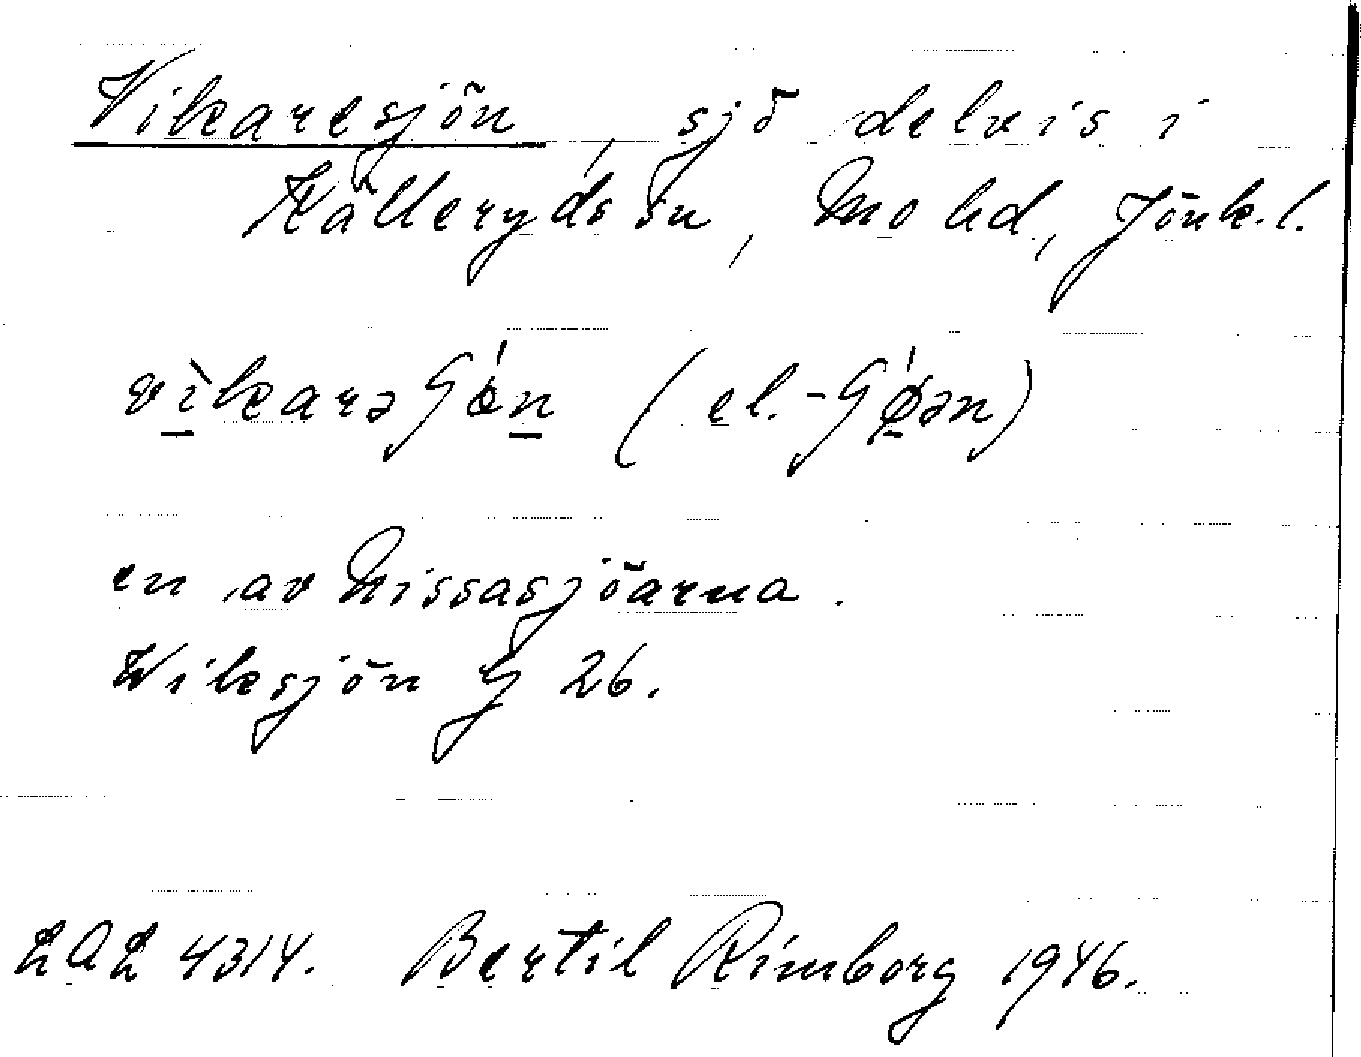 Vikaresjön, sjö delvis i
Kålleryds sn, Mo hd, Jönk.l.
vìkarəʃǿn (el. -ʃǿən)
en av Nissasjöarna.
Wiksjön G 26.
LAL 4314. Bertil Rimborg 1946.